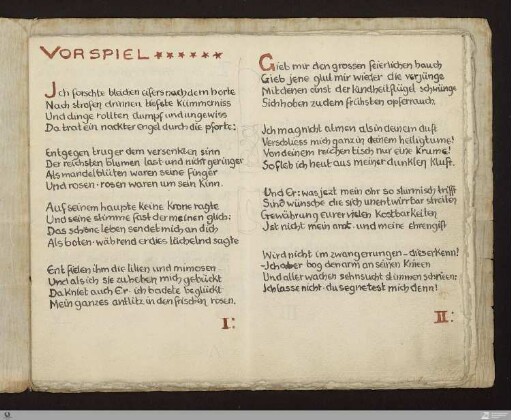 VORSPIEL ******
Jch forschte bleichen eifers nach dem horte
Nach strofen drinnen tiefste kümmerniss
Und dinge rollten dumpf und ungewiss
Da trat ein nackter engel durch die pforte:
Entgegen trug er dem versenkten sinn
Der reichsten blumen last und nicht geringer
Als mandelblüten waren seine finger
Und rosen · rosen waren um sein kinn.
Auf seinem haupte keine krone ragte
Und seine stimme fast der meinen glich:
Das schöne leben sendet mich an dich
Als boten · während er dies lächelnd sagte
Entfielen ihm die lilien und mimosen
Und als ich sie zu heben mich gebückt
Da kniet auch Er · ich badete beglückt
Mein ganzes antlitz in den frischen rosen.
I:
Gieb mir den grossen feierlichen hauch
Gieb jene glut mir wieder die verjünge
Mit denen einst der kindheit flügel schwünge
Sich hoben zu dem frühsten opferrauch.
Jch mag nicht atmen als in deinem duft
Verschliess mich ganz in deinem heiligtume!
Von deinem reichen tisch nur eine krume!
So fleh ich heut aus meiner dunklen kluft.
Und Er: was jezt mein ohr so stürmisch trifft
Sind wünsche die sich unentwirrbar streiten
Gewährung eurer vielen kostbarkeiten
Jst nicht mein amt · und meine ehrengift
Wird nicht im zwang errungen – dies erkenn!
Jch aber bog den arm an seinen knieen
Und aller wachen sehnsucht stimmen schrieen:
Jch lasse nicht · du segnetest mich denn!
II: